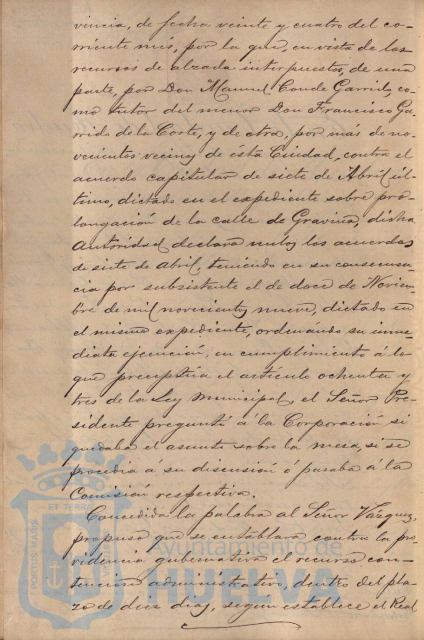 vincia, de fecha veinte y cuatro del co-
rriente mes, por la que, en vista de los
recursos de alzada interpuestos, de una
parte, por Don Manuel Conde Garrido, co-
mo tutor del menor Don Francisco Ga-
rrido de la Corte, y de otra, por más de no-
vecientos vecinos de ésta Ciudad, contra el
acuerdo capitular de siete de Abril úl-
timo, dictado en el expediente sobre pro-
longación de la calle de Gravina, dicha
Autoridad declara nulos los acuerdos
de siete de Abril, teniendo en su consecuen-
cia por subsistente el de doce de Noviem-
bre de mil novecientos nueve, dictado en
el mismo expediente, ordenando su inme-
diata ejecución, en cumplimiento á lo
que preceptúa el artículo ochenta y
tres de la Ley Municipal, el Señor Pre-
sidente preguntó á la Corporación si
quedaba el asunto sobre la mesa, si se
procedia á su discusión ó pasaba á la
Comisión respectiva.
Concedida la palabra al Señor Vázquez,
propuso que se entablara contra la pro-
videncia gubernativa el recurso con-
tencioso administrativo dentro del pla-
zo de diez dias, segun establece el Real
Ayuntamiento de
HUELVA
PORTUS MARIS
ET TERRAE